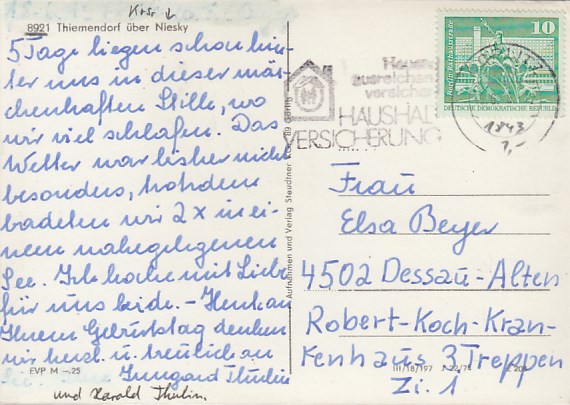 Krs. ↓
8921 Thiemendorf über Niesky
5 Tage liegen schon hin-
ter uns in dieser mär-
chenhaften Stille, wo
wir viel schlafen. Das
Wetter war bisher nicht
besonders, trotzdem
badeten wir 2 x in ei-
nem nahegelegenen
See. Ich koche mit Liebe
für uns beide. – Heute an
Ihrem Geburtstag denken
wir herzl. u. treulich an
Irmgard Thulin
und Harald Thulin.
EVP M –.25
Aufnahmen und Verlag Steudtner KG, 89 Görlitz
III/18/197
HAUSHALT
VERSICHERUNG
10
DEUTSCHE DEMOKRATISCHE REPUBLIK
1843
1,–
Frau
Elsa Beyer
4502 Dessau-Alten
Robert-Koch-Kran-
kenhaus 3 Treppen
Zi. 1